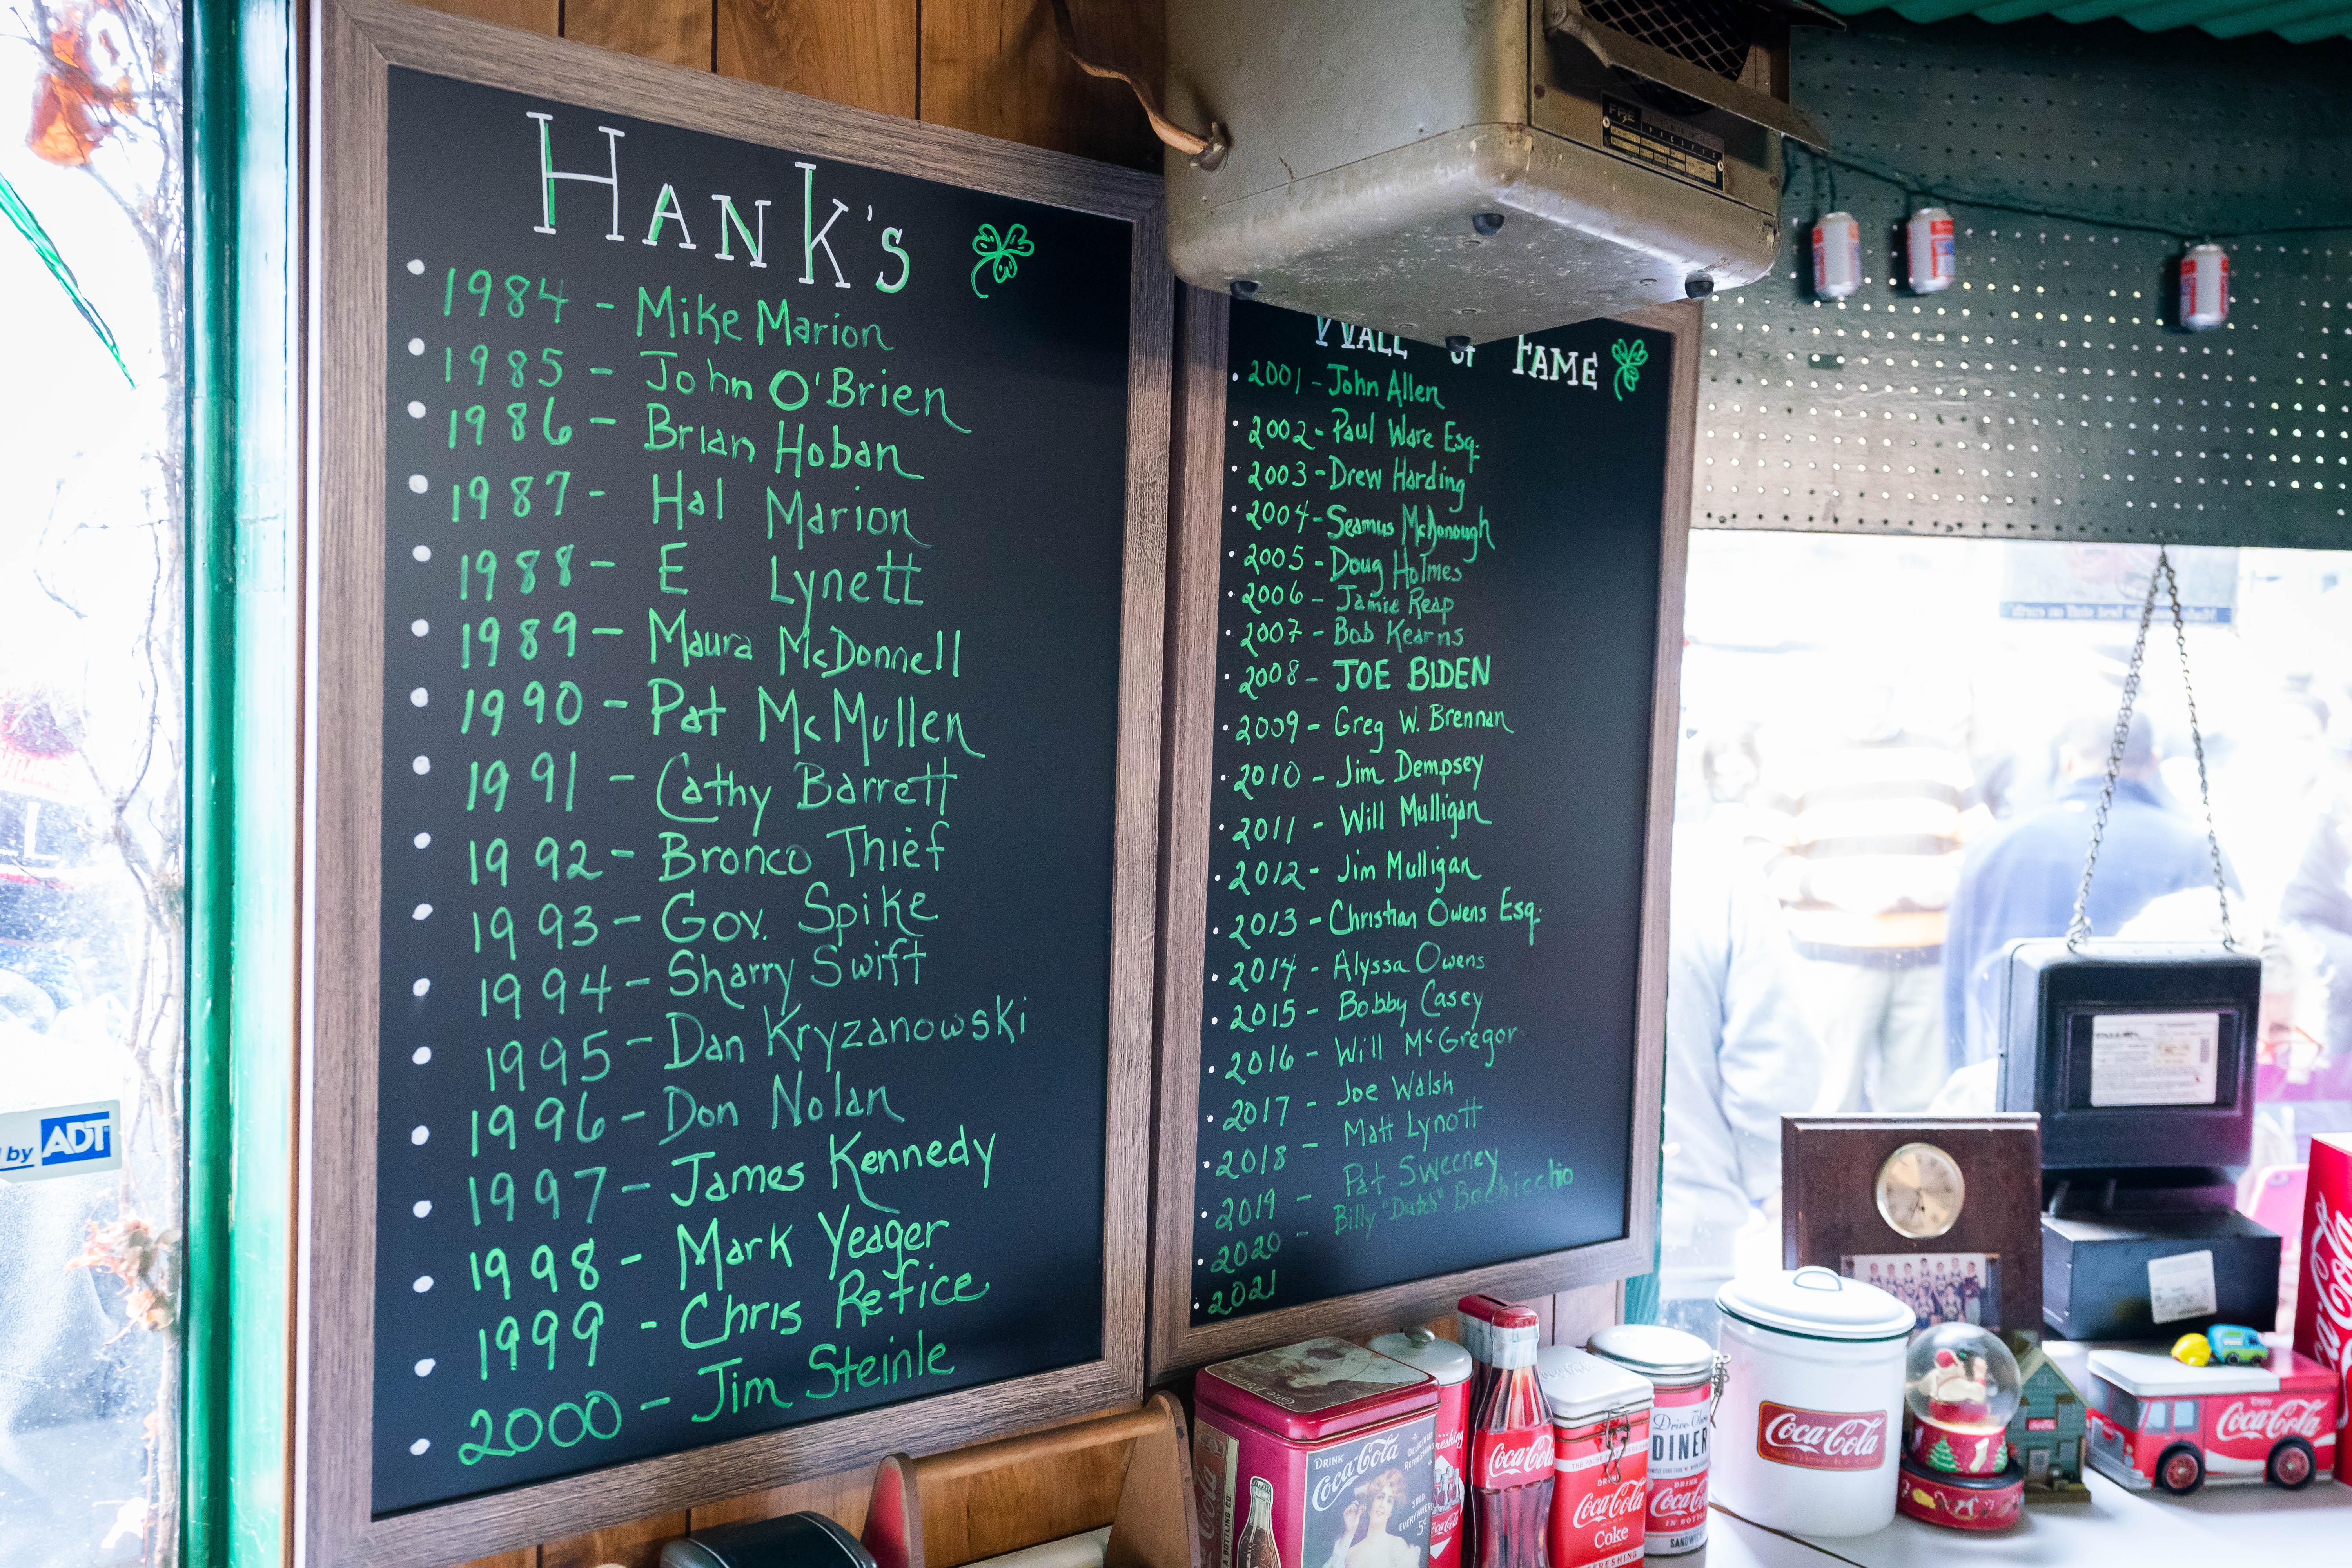 HANK's
1984 - Mike Marion
1985 - John O'Brien
1986 - Brian Hoban
1987 - Hal Marion
1988 - E Lynett
1989 - Maura McDonnell
1990 - Pat McMullen
1991 - Cathy Barrett
1992 - Bronco Thief
1993 - Gov. Spike
1994 - Sharry Swift
1995 - Dan Kryzanowski
1996 - Don Nolan
1997 - James Kennedy
1998 - Mark Yeager
1999 - Chris Refice
2000 - Jim Steinle
WALL of FAME
2001 - John Allen
2002 - Paul Ware Esq.
2003 - Drew Harding
2004 - Seamus McDonough
2005 - Doug Holmes
2006 - Jamie Reap
2007 - Bob Kearns
2008 - JOE BIDEN
2009 - Greg W. Brennan
2010 - Jim Dempsey
2011 - Will Mulligan
2012 - Jim Mulligan
2013 - Christian Owens Esq.
2014 - Alyssa Owens
2015 - Bobby Casey
2016 - Will McGregor
2017 - Joe Walsh
2018 - Matt Lynott
2019 - Pat Sweeney
2020 - Billy "Dutch" Bochicchio
2021
by ADT
DRINK
Coca-Cola
DELICIOUS
REFRESHING
SOLD
EVERYWHERE
5¢
Coca-Cola
DRINK
Coca-Cola
Coke
REFRESHING
Drive-Thru
DINER
DRINK
Coca-Cola
IN BOTTLES
Coca-Cola
Sold Here Ice Cold
Enjoy
Coca-Cola
Coca-Cola